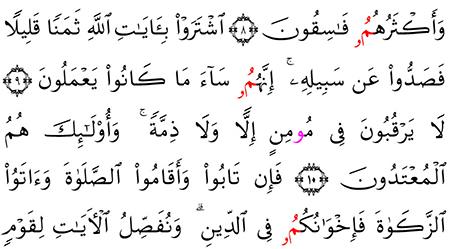 وَأَكۡثَرُهُمُۥ فَٰسِقُونَ ۝٨ ٱشۡتَرَوۡاْ بِـَٔايَٰتِ ٱللَّهِ ثَمَنٗا قَلِيلٗا
فَصَدُّواْ عَن سَبِيلِهِۦٓۚ إِنَّهُمُۥ سَآءَ مَا كَانُواْ يَعۡمَلُونَ ۝٩
لَا يَرۡقُبُونَ فِي مُومِنٍ إِلّٗا وَلَا ذِمَّةٗۚ وَأُوْلَٰٓئِكَ هُمُ
ٱلۡمُعۡتَدُونَ ۝١٠ فَإِن تَابُواْ وَأَقَامُواْ ٱلصَّلَوٰةَ وَءَاتَوُاْ
ٱلزَّكَوٰةَ فَإِخۡوَٰنُكُمُۥ فِي ٱلدِّينِۗ وَنُفَصِّلُ ٱلۡأٓيَٰتِ لِقَوۡمٖ